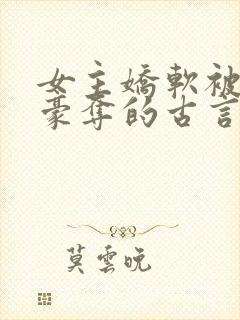 女主嬌軟被
豪奪的古言
莫雲晚